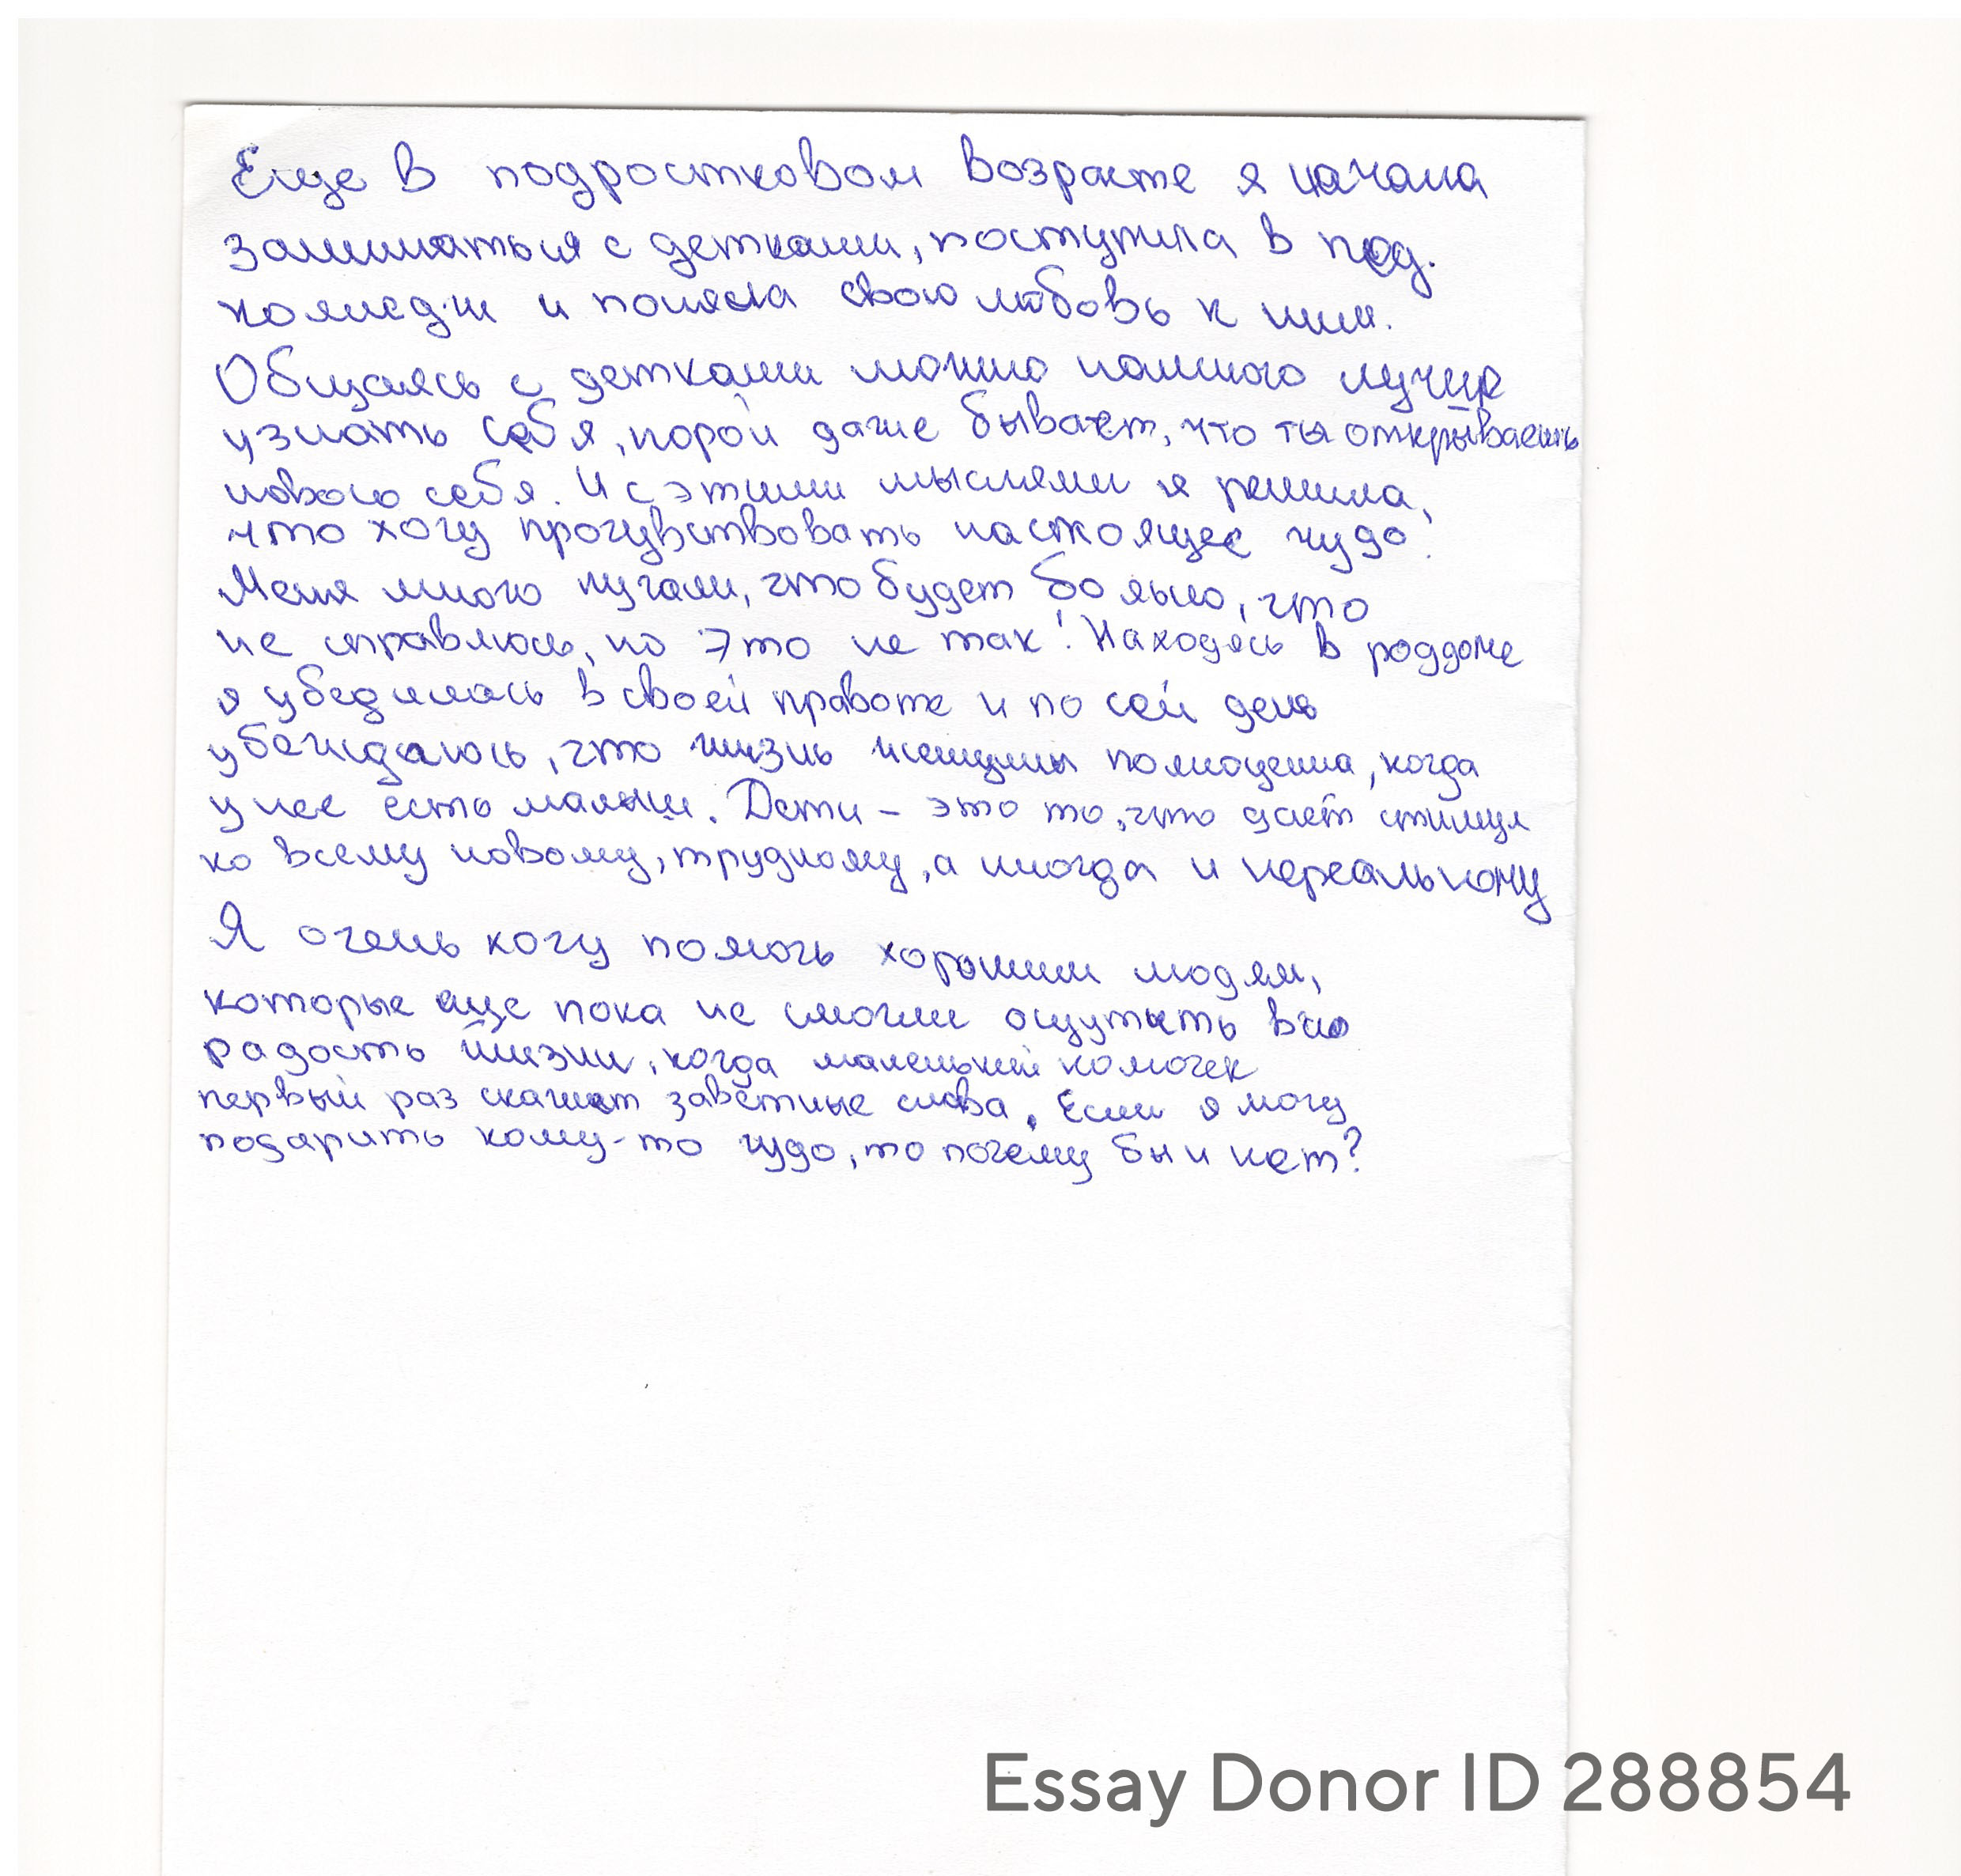 Еще в подростковом возрасте я начала
заниматься с детками, поступила в пед.
колледж и поняла свою любовь к ним.
Общаясь с детками можно намного лучше
узнать себя, порой даже бывает, что ты открываешь
нового себя. И с этими мыслями я решила,
что хочу прочувствовать настоящее чудо!
Меня много пугали, что будет больно, что
не справлюсь, но это не так! Находясь в роддоме
я убедилась в своей правоте и по сей день
убеждаюсь, что жизнь женщины полноценна, когда
у нее есть малыши. Дети - это то, что даёт стимул
ко всему новому, трудному, а иногда и нереальному
Я очень хочу помочь хорошим людям,
которые еще пока не смогли ощутить всю
радость жизни, когда маленький комочек
первый раз скажет заветные слова. Если я могу
подарить кому-то чудо, то почему бы и нет?
Essay Donor ID 288854